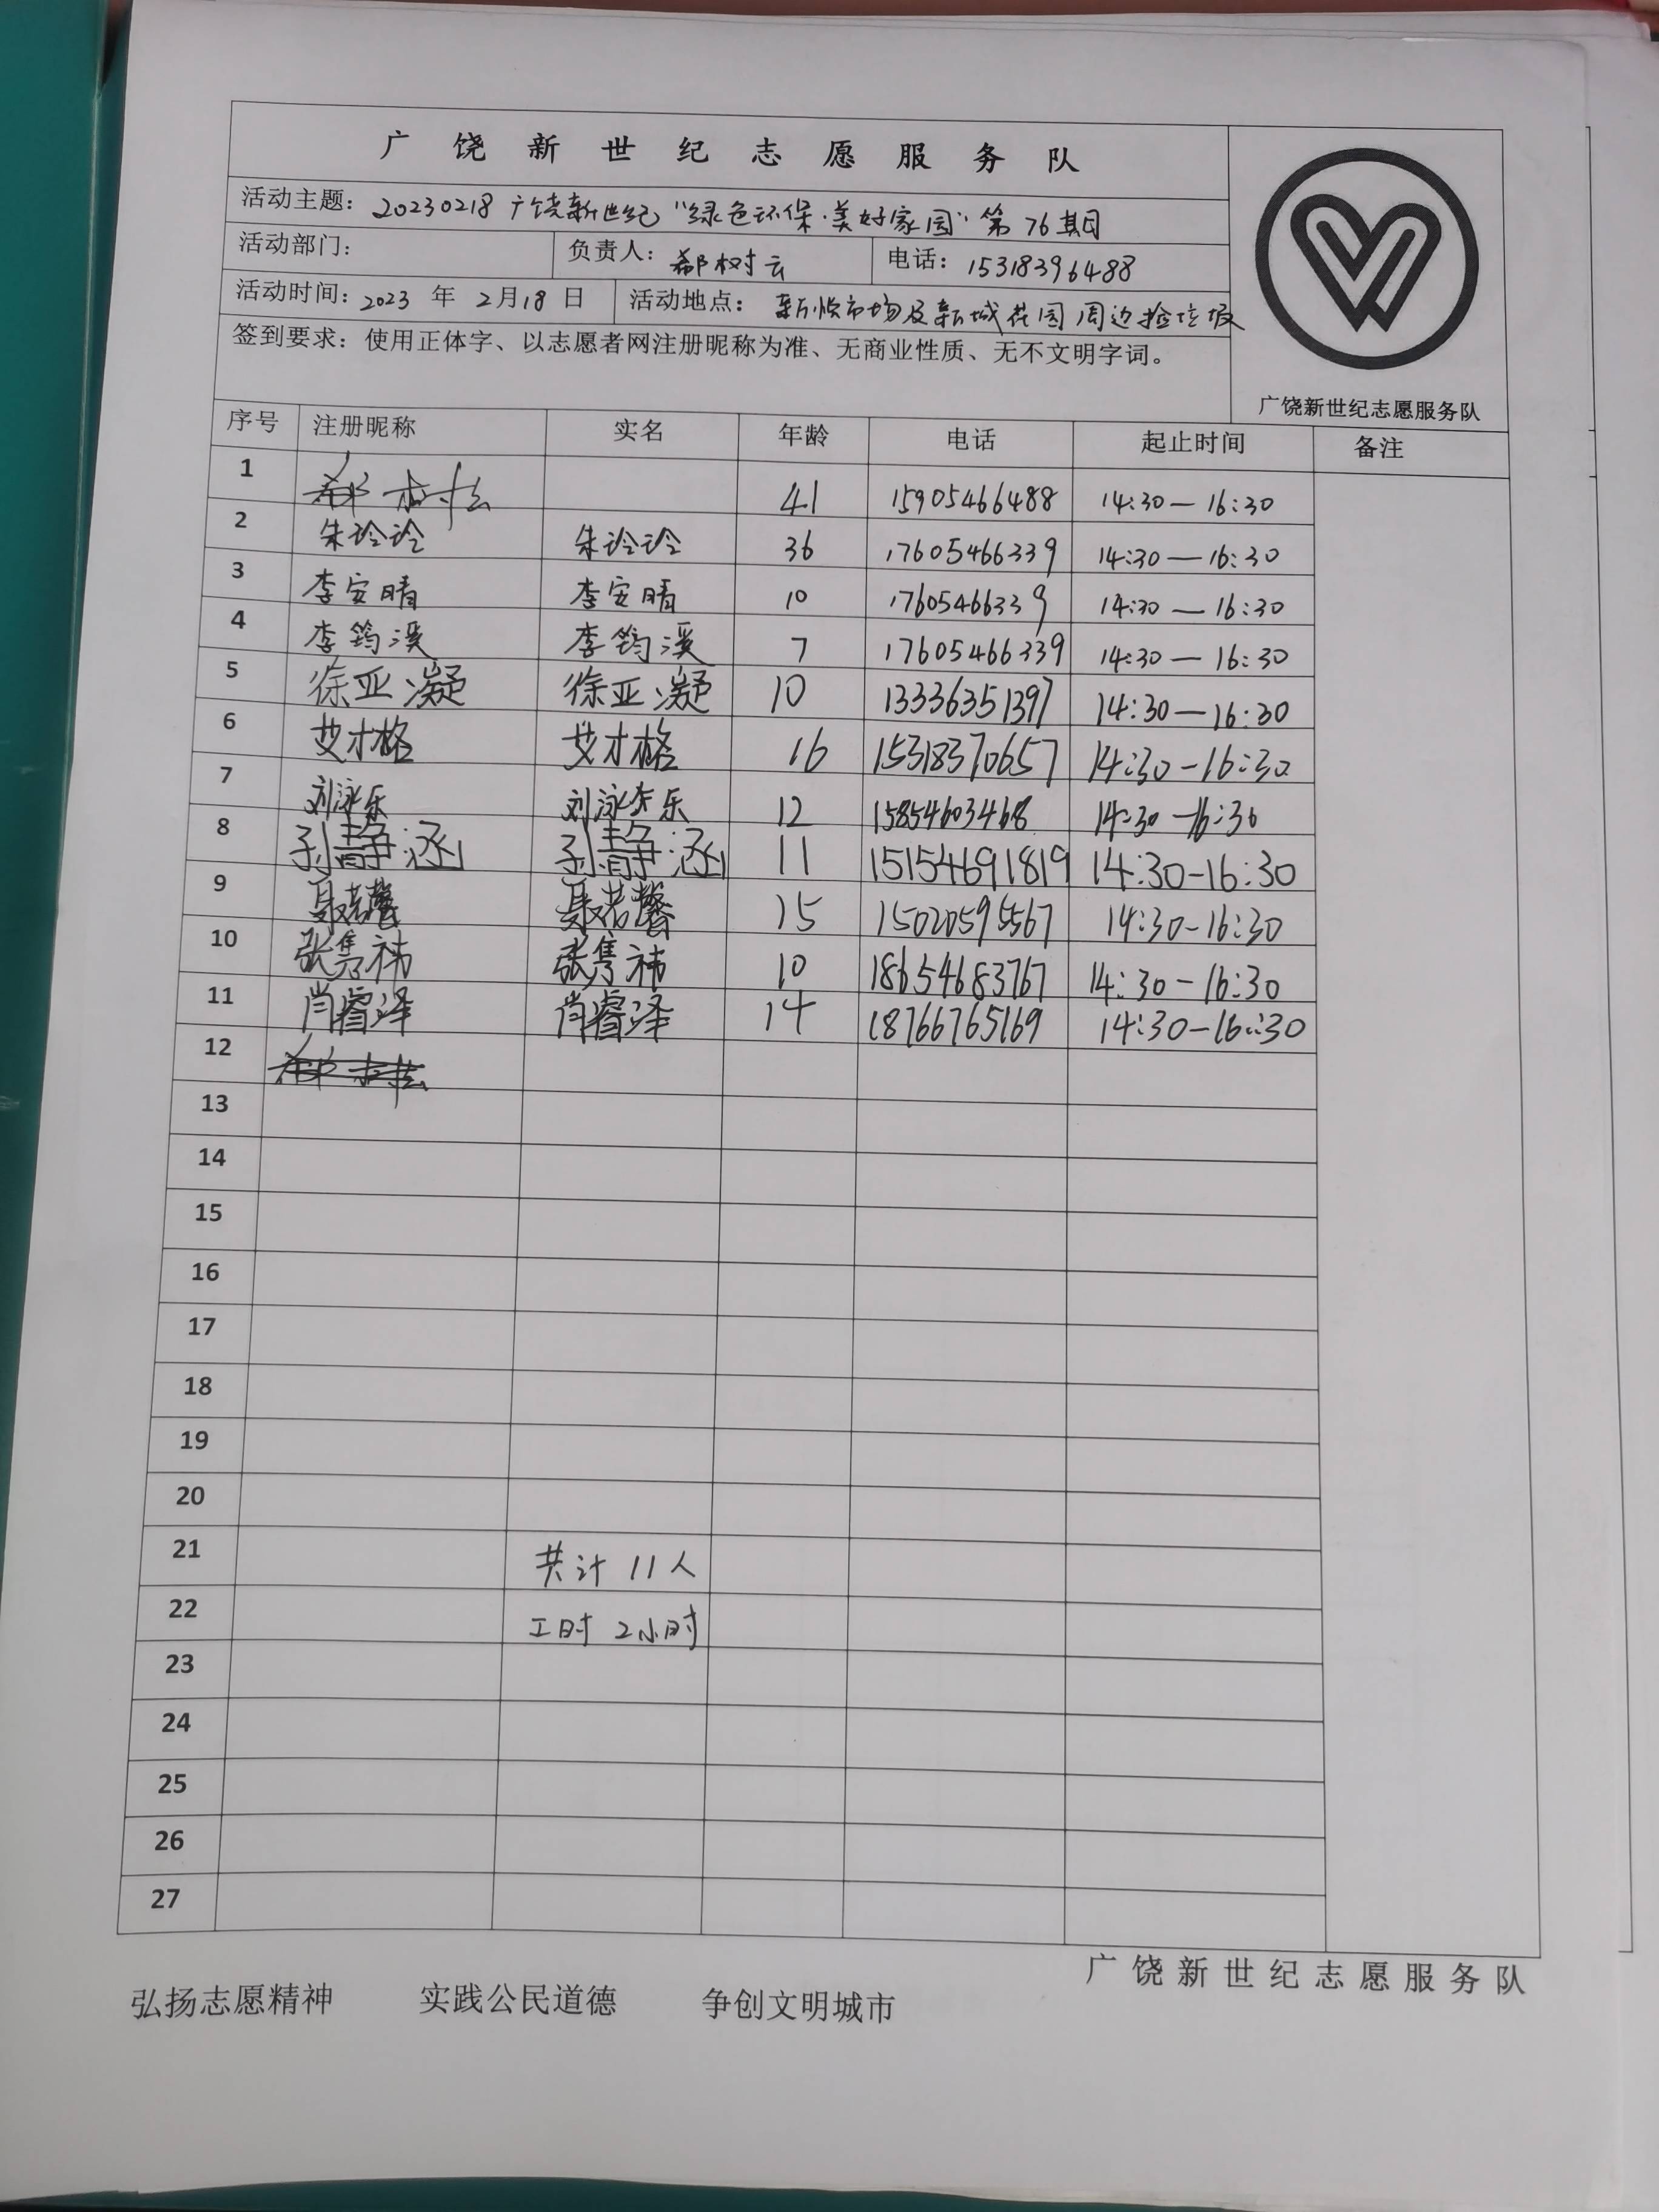 广饶新世纪志愿服务队
活动主题：20230218 广饶新世纪“绿色环保·美好家园”第76期
活动部门： 负责人：郗树云 电话：15318396488
活动时间：2023年2月18日 活动地点：新悦市场及新城花园周边捡垃圾
签到要求：使用正体字、以志愿者网注册昵称为准、无商业性质、无不文明字词。
广饶新世纪志愿服务队
序号 注册昵称 实名 年龄 电话 起止时间 备注
1 41 15905466488 14:30—16:30
2 朱玲玲 朱玲玲 36 17605466339 14:30—16:30
3 李安晴 李安晴 10 17605466339 14:30—16:30
4 李筠溪 李筠溪 7 17605466339 14:30—16:30
5 徐亚凝 徐亚凝 10 13336351397 14:30—16:30
6 艾才格 艾才格 16 15318370657 14:30-16:30
7 刘泳乐 刘泳乐 12 15854603468 14:30-16:30
8 孙静涵 孙静涵 11 15154691819 14:30-16:30
9 聂若馨 聂若馨 15 15020595567 14:30-16:30
10 张隽祎 张隽祎 10 18654683767 14:30-16:30
11 肖睿泽 肖睿泽 14 18766765169 14:30-16:30
12
13
14
15
16
17
18
19
20
21 共计11人
22 工时2小时
23
24
25
26
27
广饶新世纪志愿服务队
弘扬志愿精神 实践公民道德 争创文明城市